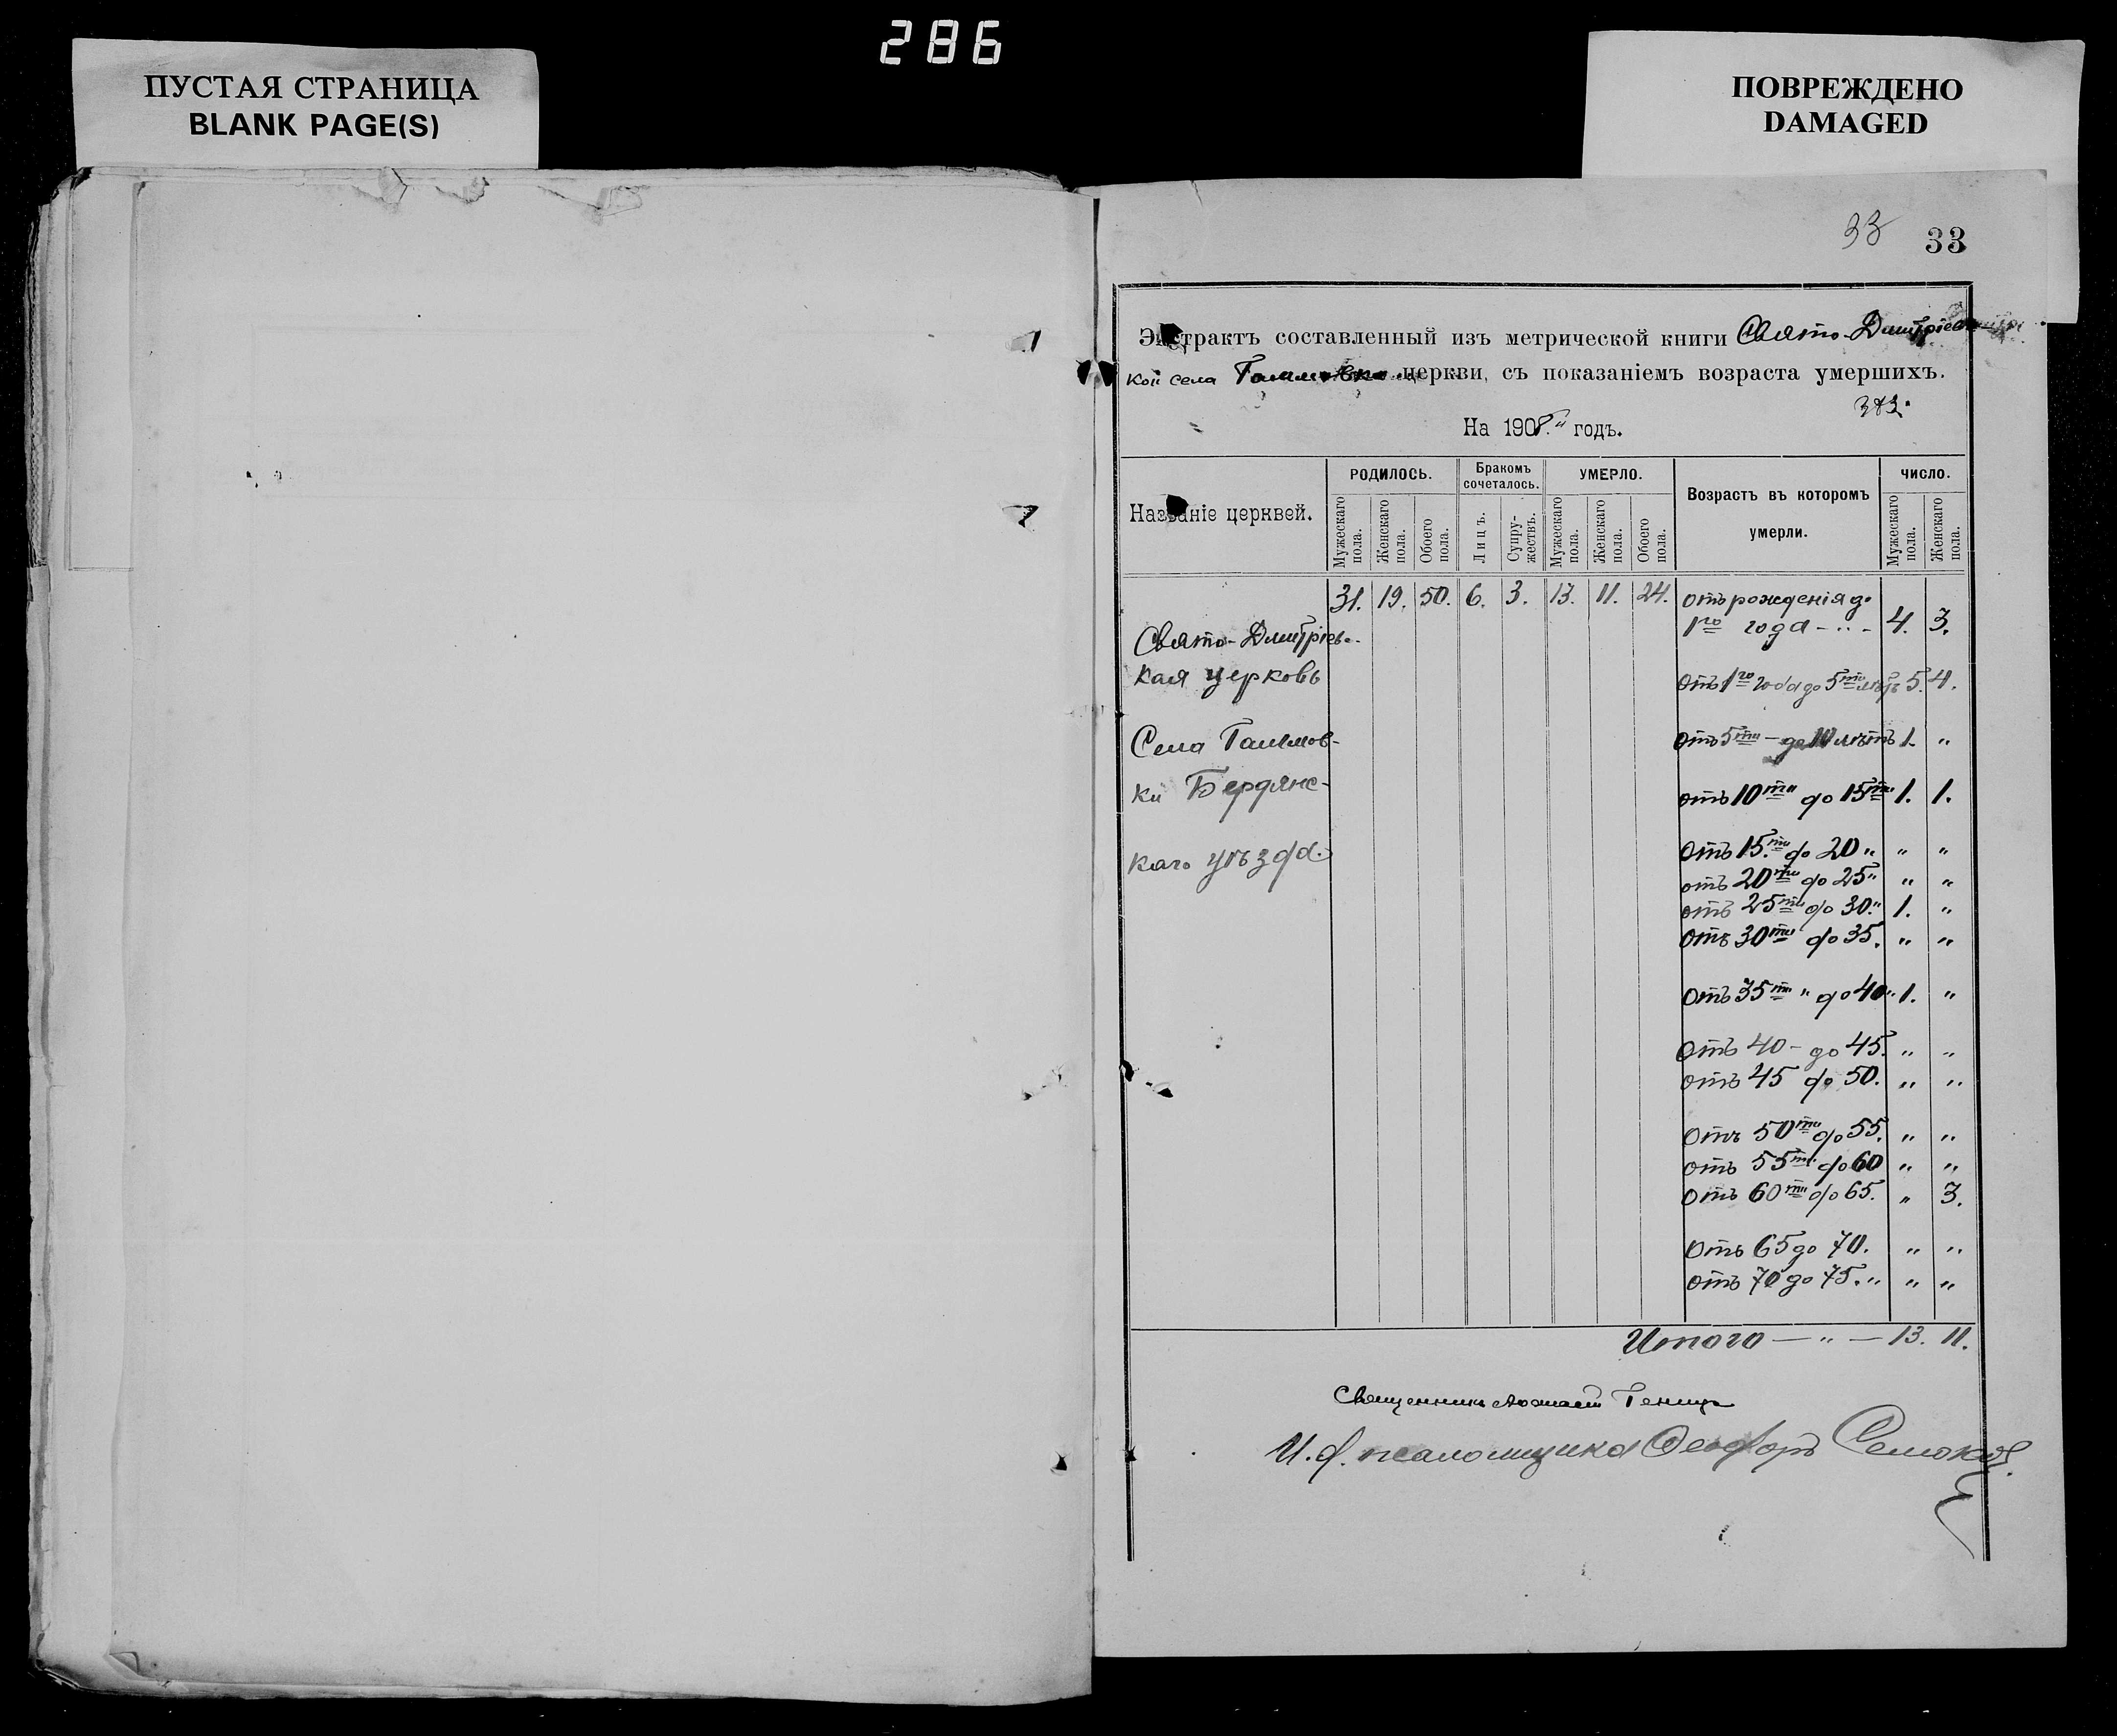 286
ПУСТАЯ СТРАНИЦА
BLANK PAGE(S)
ПОВРЕЖДЕНО
DAMAGED
33 33
Экстрактъ составленный изъ метрической книги Свято-Дмитріев
кой села церкви, съ показаніемъ возраста умершихъ.
На 1908 годъ.
Названіе церквей. РОДИЛОСЬ. Бракомъ сочеталось. УМЕРЛО. Возрастъ въ которомъ умерли. ЧИСЛО.
Мужескаго пола. Женскаго пола. Обоего пола. Лицъ. Супружествъ. Мужескаго пола. Женскаго пола. Обоего пола. Мужескаго пола. Женскаго пола.
31. 19. 50. 6. 3. 13. 11. 24. отъ рожденія до
1го года - " - 4. 3.
Свято-Дмитріевс-
кая церковь
отъ 1го года до 5ти лѣтъ 5. 4.
Села
отъ 5ти - до 10 лѣтъ 1. "
ки Бердянс-
отъ 10ти до 15ти 1. 1.
каго уѣзда.
отъ 15ти до 20 " " "
отъ 20ти до 25 " " "
отъ 25ти до 30. " 1. "
отъ 30ти до 35. " "
отъ 35ти " до 40 " 1. "
отъ 40 - до 45. " "
отъ 45 до 50. " "
отъ 50ти до 55. " "
отъ 55ти до 60 " "
отъ 60ти до 65. " 3.
отъ 65 до 70. " "
отъ 70 до 75. " " "
Итого — " — 13. 11.
Священникъ
И. д. псаломщика Ѳеодоръ